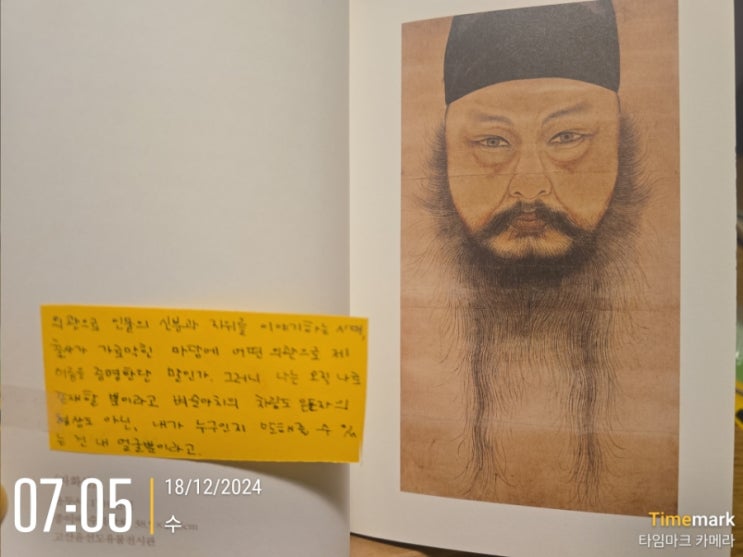 의관으로 인물의 신분과 지위를 이야기하는 시대,
출사가 가로막힌 마당에 어떤 의관으로 제
이름을 증명한단 말인가. 그러니 나는 오직 나로
존재할 뿐이라고 벼슬아치의 차림도 은둔자의
형상도 아닌, 내가 누구인지 말해줄 수 있
는 건 내 얼굴뿐이라고.
고산윤선도유물전시관
07:05
18/12/2024
수
Timemark
타임마크 카메라